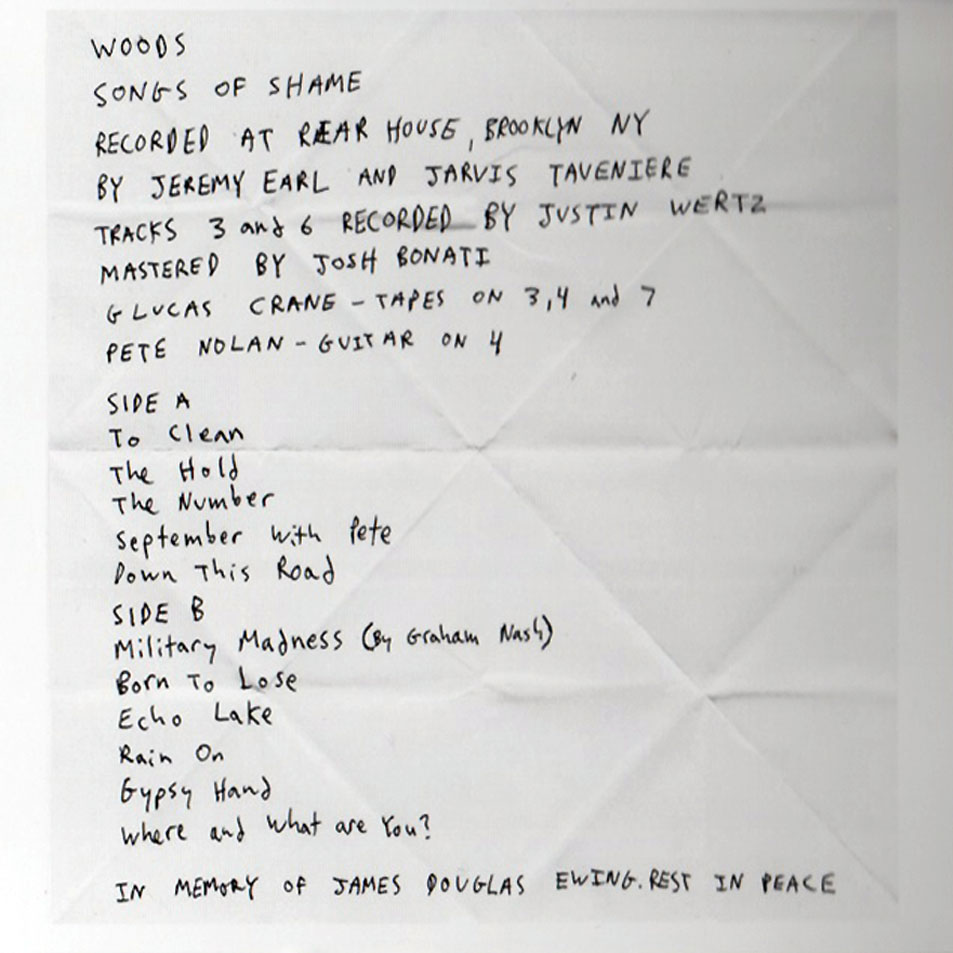 WOODS
SONGS OF SHAME
RECORDED AT REAR HOUSE, BROOKLYN NY
BY JEREMY EARL AND JARVIS TAVENIERE
TRACKS 3 and 6 RECORDED BY JUSTIN WERTZ
MASTERED BY JOSH BONATI
G LUCAS CRANE - TAPES ON 3,4 and 7
PETE NOLAN - GUITAR ON 4
SIDE A
To Clean
The Hold
The Number
September With Pete
Down This Road
SIDE B
Military Madness (By Graham Nash)
Born To Lose
Echo Lake
Rain On
Gypsy Hand
Where and What are You?
IN MEMORY OF JAMES DOUGLAS EWING. REST IN PEACE